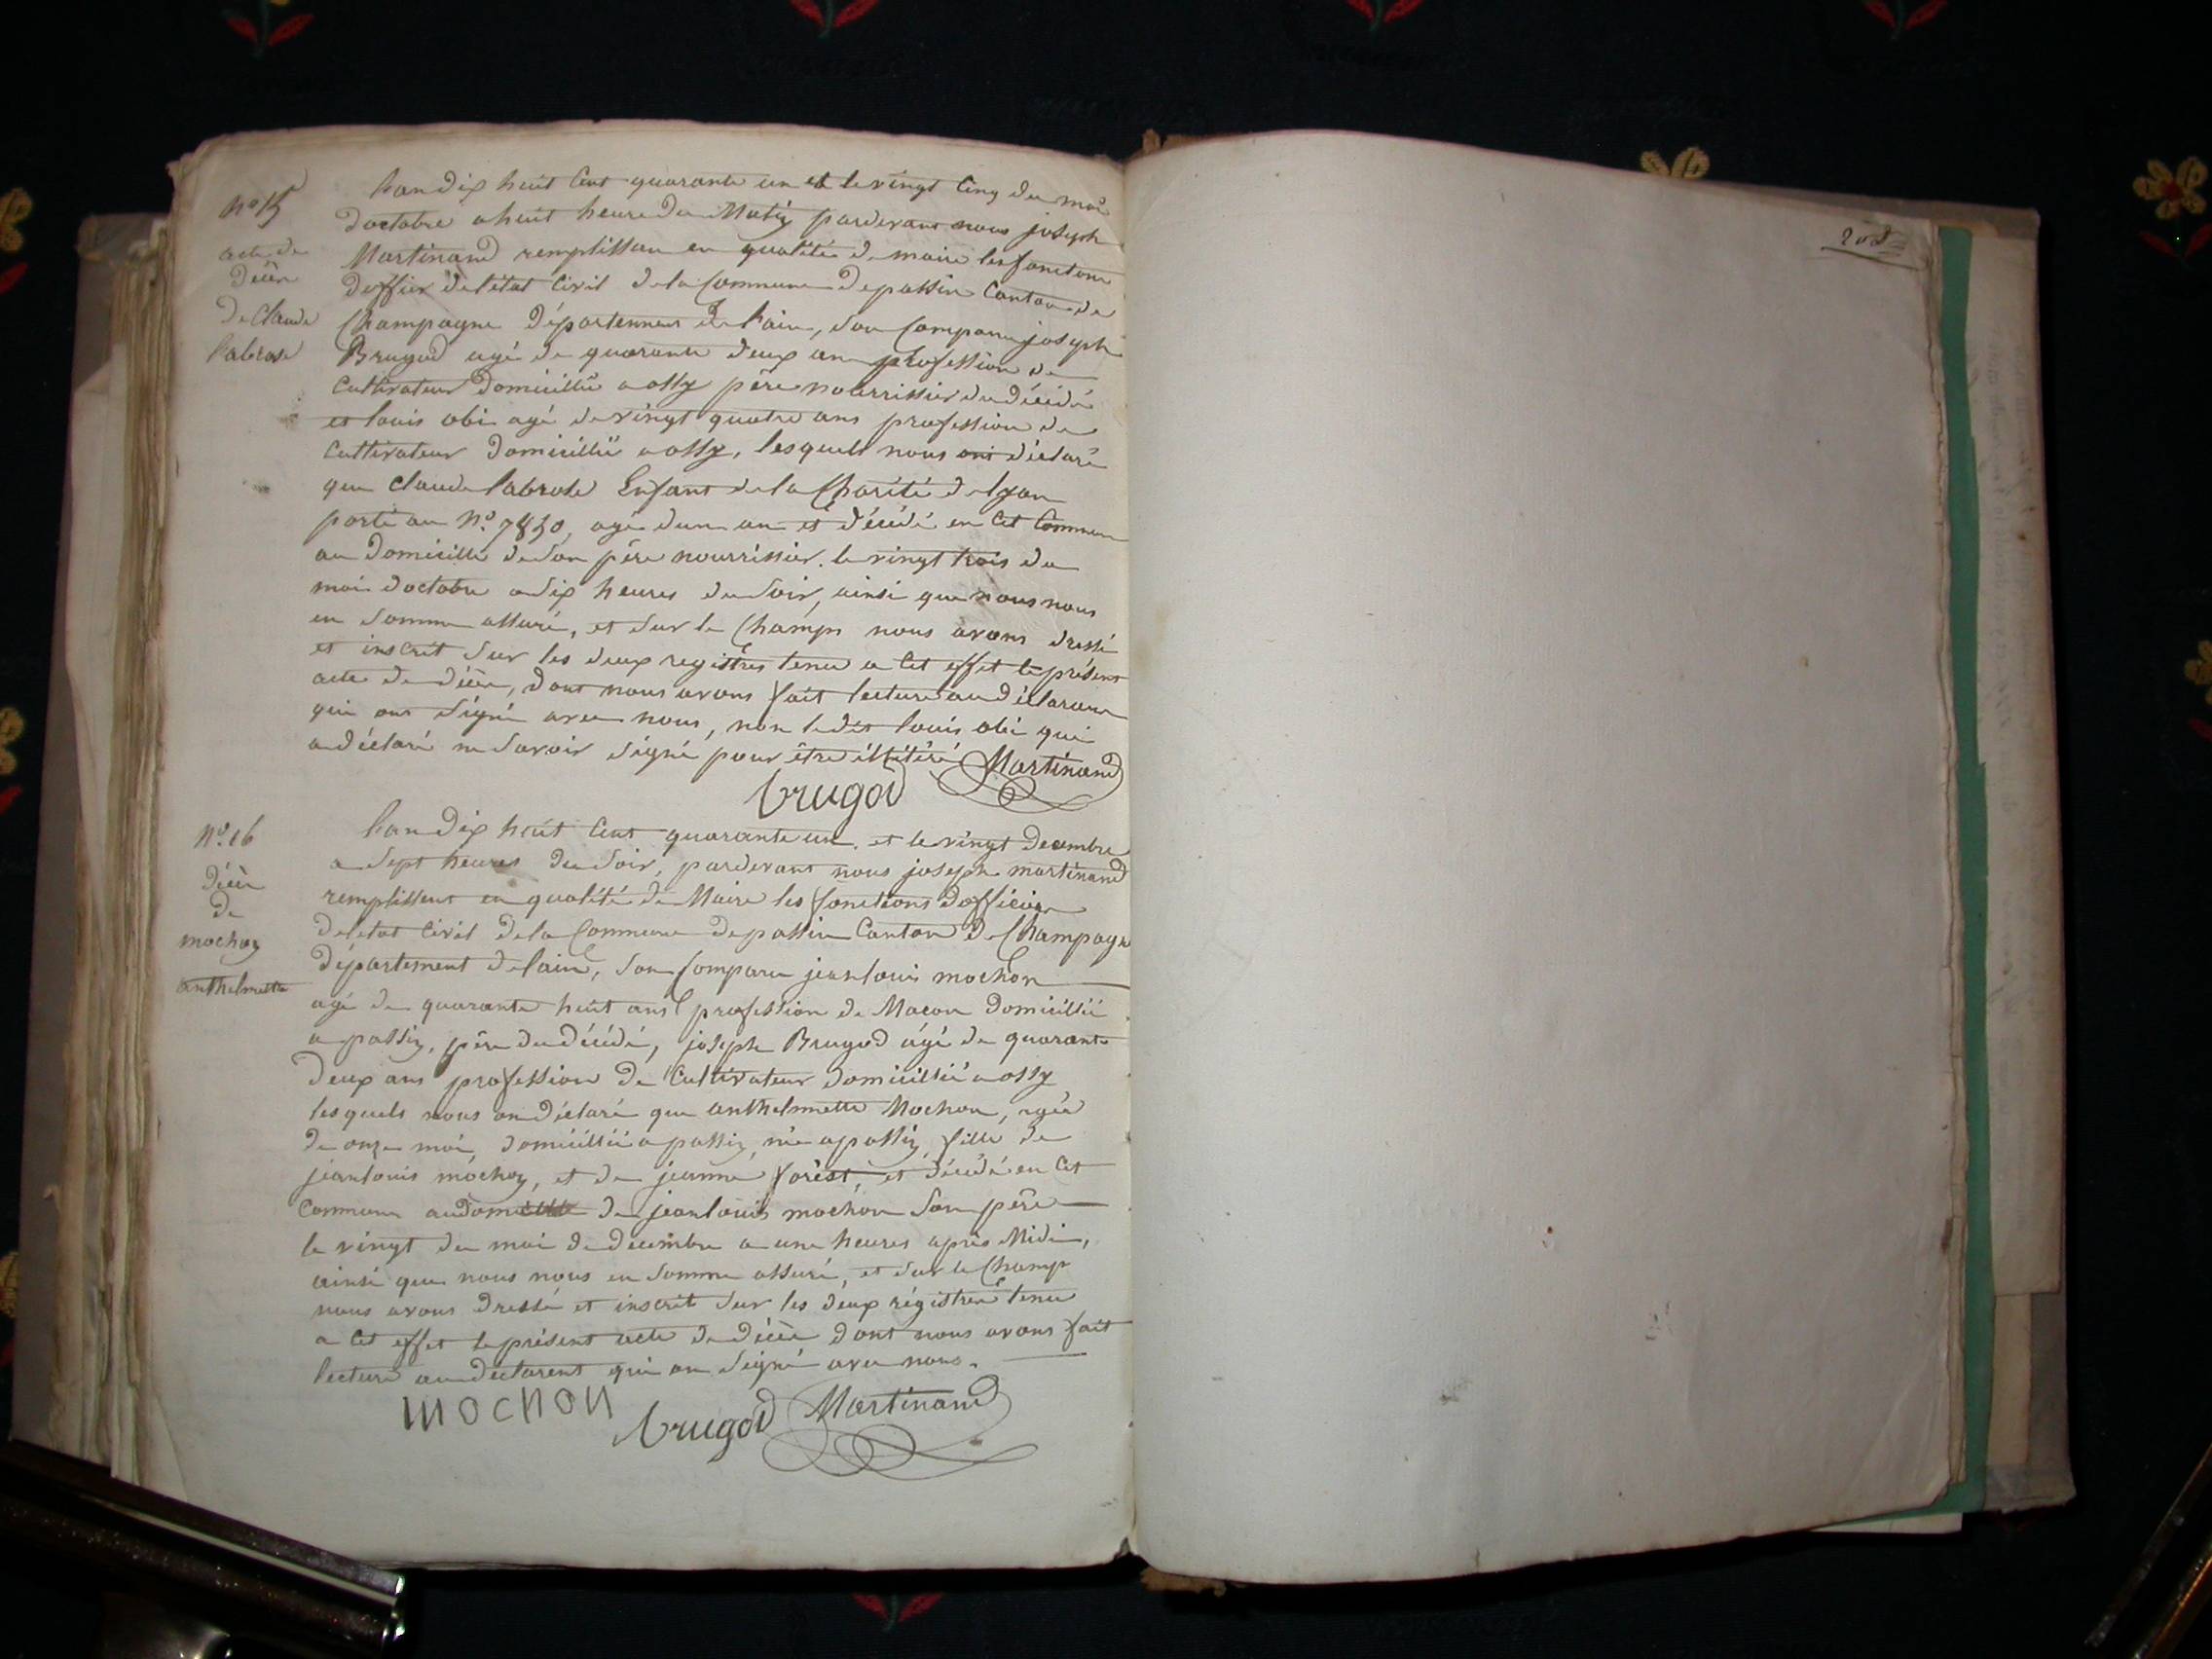 no 15
acte de
décès
De Claude
labrose
Lan dix huit Cent quarante un et le vingt Cinq du moi
doctobre a huit heure du Matin pardevant nous joseph
Martinand remplissan en qualité de maire les fonctions
doffier de létat Civil de la Commune de passin Canton de
Champagne département de lain, son Comparu joseph
Brugod agé de quarante deux an profession de
Cultivateur domicillié a ossy père nourrissier du décédé
et louis obi agé de vingt quatre ans profession de
Cultivateur domicillié a ossy, lesquels nous ont déclaré
que Claude labrose Enfant de la Charité de lyon
porté au No. 7830, agé dun an et décédé en Cet Commune
au domicille de son père nourrissier. le vingt trois du
moi doctobre a six heures du soir, ainsi que nous nous
en somme assuré, et sur le Champs nous avons dressé
et inscrit sur les deux registres tenu a Cet effet le présent
acte de décès, dont nous avons fait lecture au déclarans
qui ont signé avec nous, non le dit louis obi qui
a déclaré ne savoir signé pour être illitéré Martinand
brugod
No. 16
décès
de
mochon
anthelmette
Lan dix huit Cent quarante un. et le vingt decembre
a sept heures du soir, pardevant nous joseph martinand
remplissent en qualité de Maire les fonctions dofficier
de letat Civil de la Commune de passin Canton de Champagne
département de lain, son Comparu jean louis mochon
agé de quarante huit ans profession de Macon domicillié
a passin, père du décédé, joseph Brugod âgé de quarante
deux ans profession de Cultivateur domicillié a ossy
lesquels nous on déclaré que anthelmette Mochon, agée
de onze moi, domicillié a passin, née a passin fille de
jean louis mochon, et de jeanne forest, et décédé en Cet
Commune au domicille de jean louis mochon son père
le vingt du moi de decembre a une heures après Midi,
ainsi que nous nous en somme assuré, et sur le Champ
nous avons dressé et inscrit sur les deux régistres tenu
a Cet effet le présent acte de décès dont nous avons fait
lecture au déclarent qui on signé avec nous.
MOCHON brugod Martinand